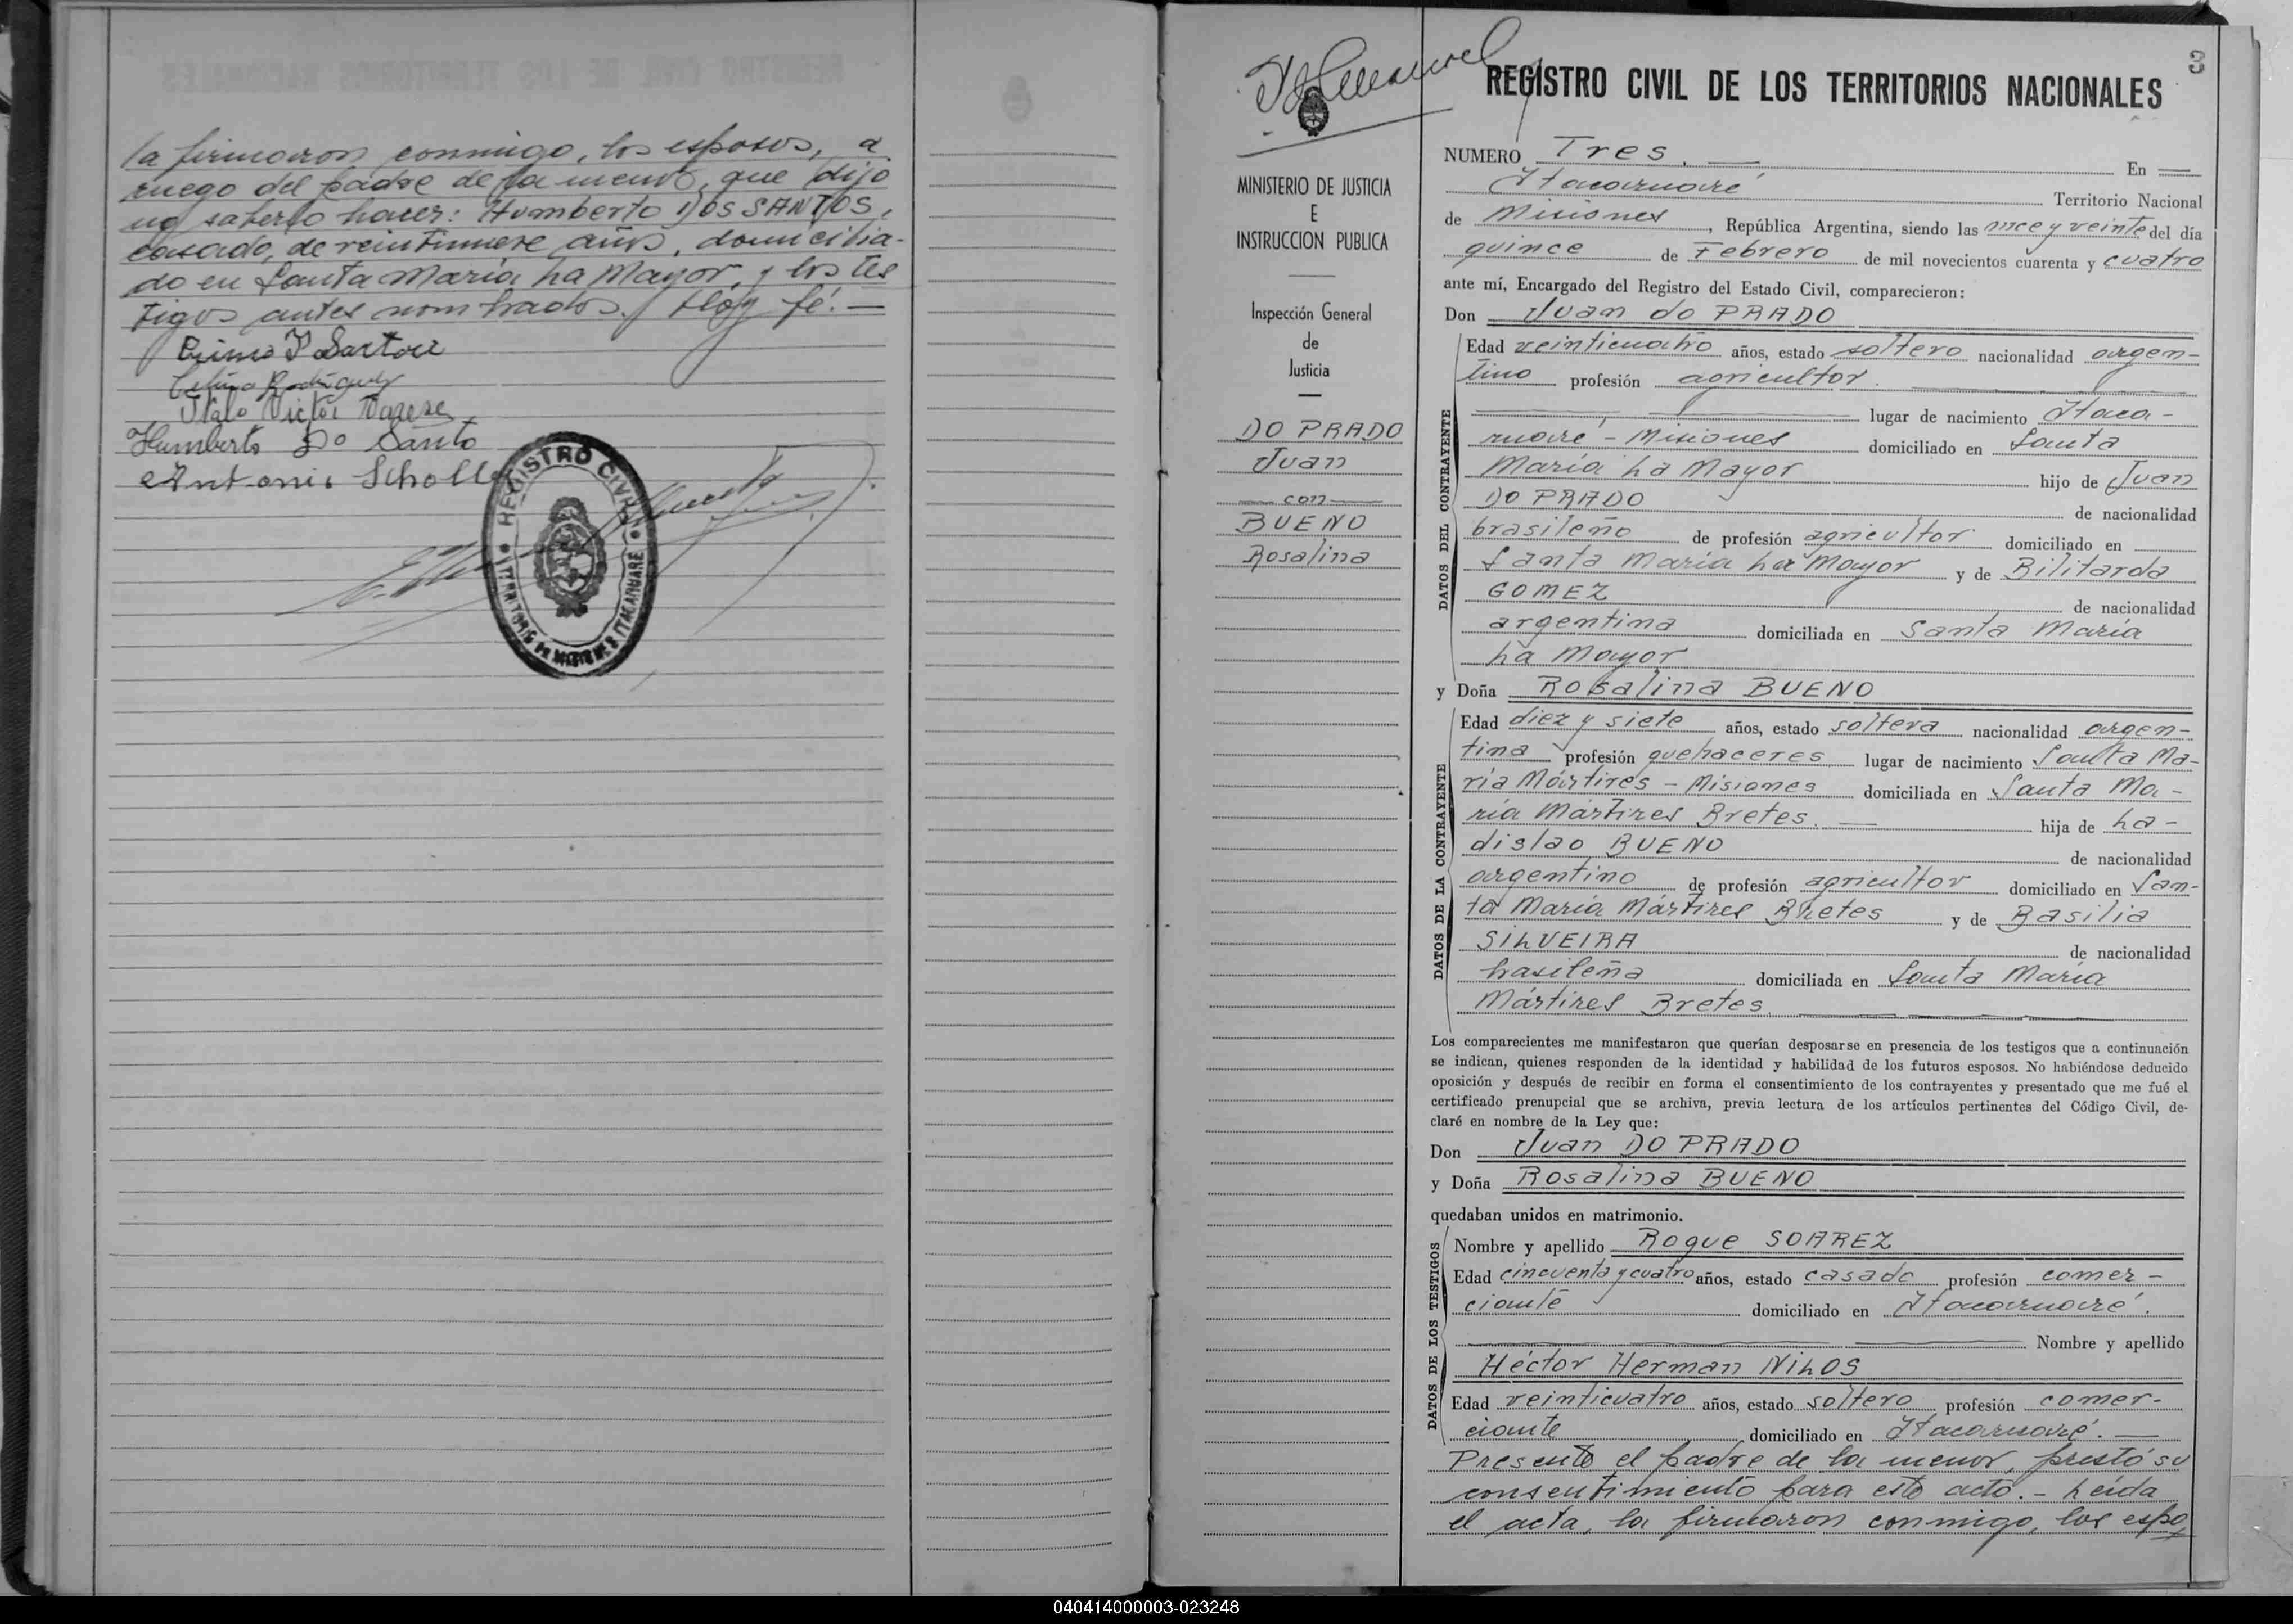 la firmaron conmigo, los esposos, a
ruego del padre de la menor, que dijo
no saberlo hacer: Humberto DOS SANTOS,
casado, de veintinueve años, domicilia-
do en Santa María La Mayor, y los tes
tigos antes nombrados. Doy fé.—
Humberto Do Santo
Antonio Scholl
REGISTRO CIVIL
TERRITORIO DE MISIONES ITACARUARE
MINISTERIO DE JUSTICIA
E
INSTRUCCION PUBLICA
Inspección General
de
Justicia
DO PRADO
Juan
— con —
BUENO
Rosalina
3
REGISTRO CIVIL DE LOS TERRITORIOS NACIONALES
NUMERO Tres. — En —
Itacaruaré Territorio Nacional
de Misiones, República Argentina, siendo las once y veinte del día
quince de Febrero de mil novecientos cuarenta y cuatro
ante mí, Encargado del Registro del Estado Civil, comparecieron:
Don Juan do PRADO
DATOS DEL CONTRAYENTE
Edad veinticuatro años, estado soltero nacionalidad argen-
tino profesión agricultor.
lugar de nacimiento Itaca-
ruaré - Misiones domiciliado en Santa
María La Mayor hijo de Juan
DO PRADO de nacionalidad
brasileño de profesión agricultor domiciliado en
Santa María La Mayor y de Bilitarda
GOMEZ de nacionalidad
argentina domiciliada en Santa María
La Mayor
y Doña Rosalina BUENO
DATOS DE LA CONTRAYENTE
Edad diez y siete años, estado soltera nacionalidad argen-
tina profesión quehaceres lugar de nacimiento Santa Ma-
ría Mártires - Misiones domiciliada en Santa Ma-
ría Mártires Bretes. — hija de La-
dislao BUENO de nacionalidad
argentino de profesión agricultor domiciliado en San-
ta María Mártires Bretes y de Basilia
SILVEIRA de nacionalidad
brasileña domiciliada en Santa María
Mártires Bretes.
Los comparecientes me manifestaron que querían desposarse en presencia de los testigos que a continuación
se indican, quienes responden de la identidad y habilidad de los futuros esposos. No habiéndose deducido
oposición y después de recibir en forma el consentimiento de los contrayentes y presentado que me fué el
certificado prenupcial que se archiva, previa lectura de los artículos pertinentes del Código Civil, de-
claré en nombre de la Ley que:
Don Juan DO PRADO
y Doña Rosalina BUENO
quedaban unidos en matrimonio.
DATOS DE LOS TESTIGOS
Nombre y apellido Roque SOAREZ
Edad cincuenta y cuatro años, estado casado profesión comer-
ciante domiciliado en Itacaruaré.
Nombre y apellido
Héctor Herman NILOS
Edad veinticuatro años, estado soltero profesión comer-
ciante domiciliado en Itacaruaré. —
Presente el padre de la menor, prestó su
consentimiento para este acto.- Leída
el acta, la firmaron conmigo, los espo
040414000003-023248